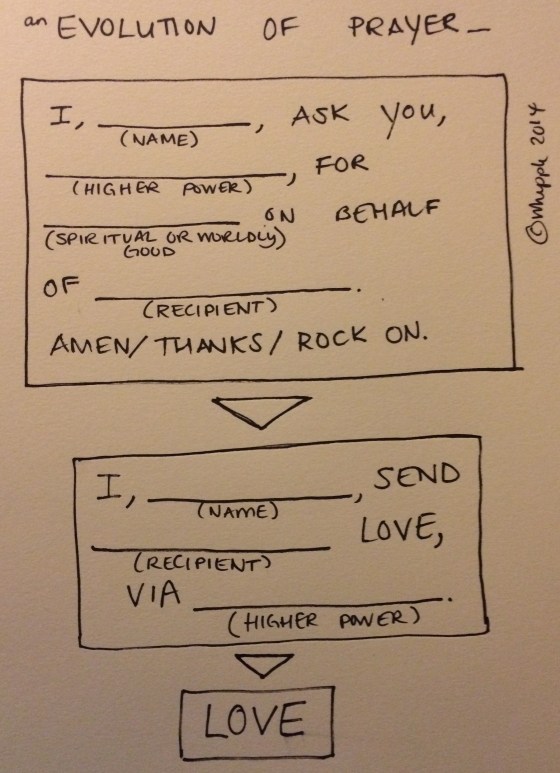 an EVOLUTION OF PRAYER_
I, ________, ASK YOU,
(NAME)
________, FOR
(HIGHER POWER)
________ ON BEHALF
(SPIRITUAL OR WORLDLY)
GOOD
OF ________.
(RECIPIENT)
AMEN/THANKS/ROCK ON.
I, ________, SEND
(NAME)
________ LOVE,
(RECIPIENT)
VIA ________.
(HIGHER POWER)
LOVE
©Whipple 2014